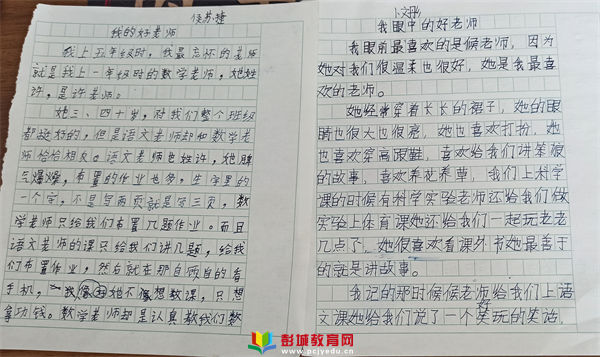 侯苏捷
我的好老师
我上五年级时，我最忘怀的老师
就是我上一年级时的数学老师，她姓
许，是许老师。
她三、四十岁，对我们整个班级
都挺好的，但是语文老师却和数学老
师恰恰相反。语文老师也姓许，她脾
气爆燥，布置的作业也多，生字里的
一个字，不是写两页就是写三页，数
学老师只给我们布置几题作业。而且
语文老师的课只给我们讲几题，给我
们布置作业，然后就在那自顾自的看
手机，我像因她不想教课，只想
拿功钱。数学老师却是认真教我们数
我眼中的好老师
我眼前最喜欢的是侯老师，因为
她对我们很温柔也很好，她是我最喜
欢的老师。
她经常穿着长长的裙子，她的眼
睛也很大也很亮，她也喜欢打扮，她
也喜欢穿高跟鞋，喜欢给我们讲笨狼
的故事，喜欢养花养草，我们上科学
课的时候有科学实验老师还给我们做
实验上体育课她还给我们一起玩老老
几点了，她很喜欢看课外书她最善于
的就是讲故事。
我记的那时候侯老师给我们上语
文课她给我们说了一个笑玩的笑话，
彭城教育网
www.pcjyedu.cn